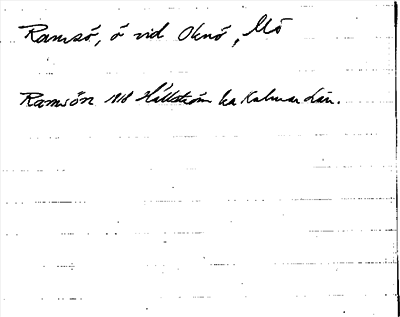 Ramsö, ö vid Oknö, Mö
Ramsön 1818 Hällström ka Kalmar Län.